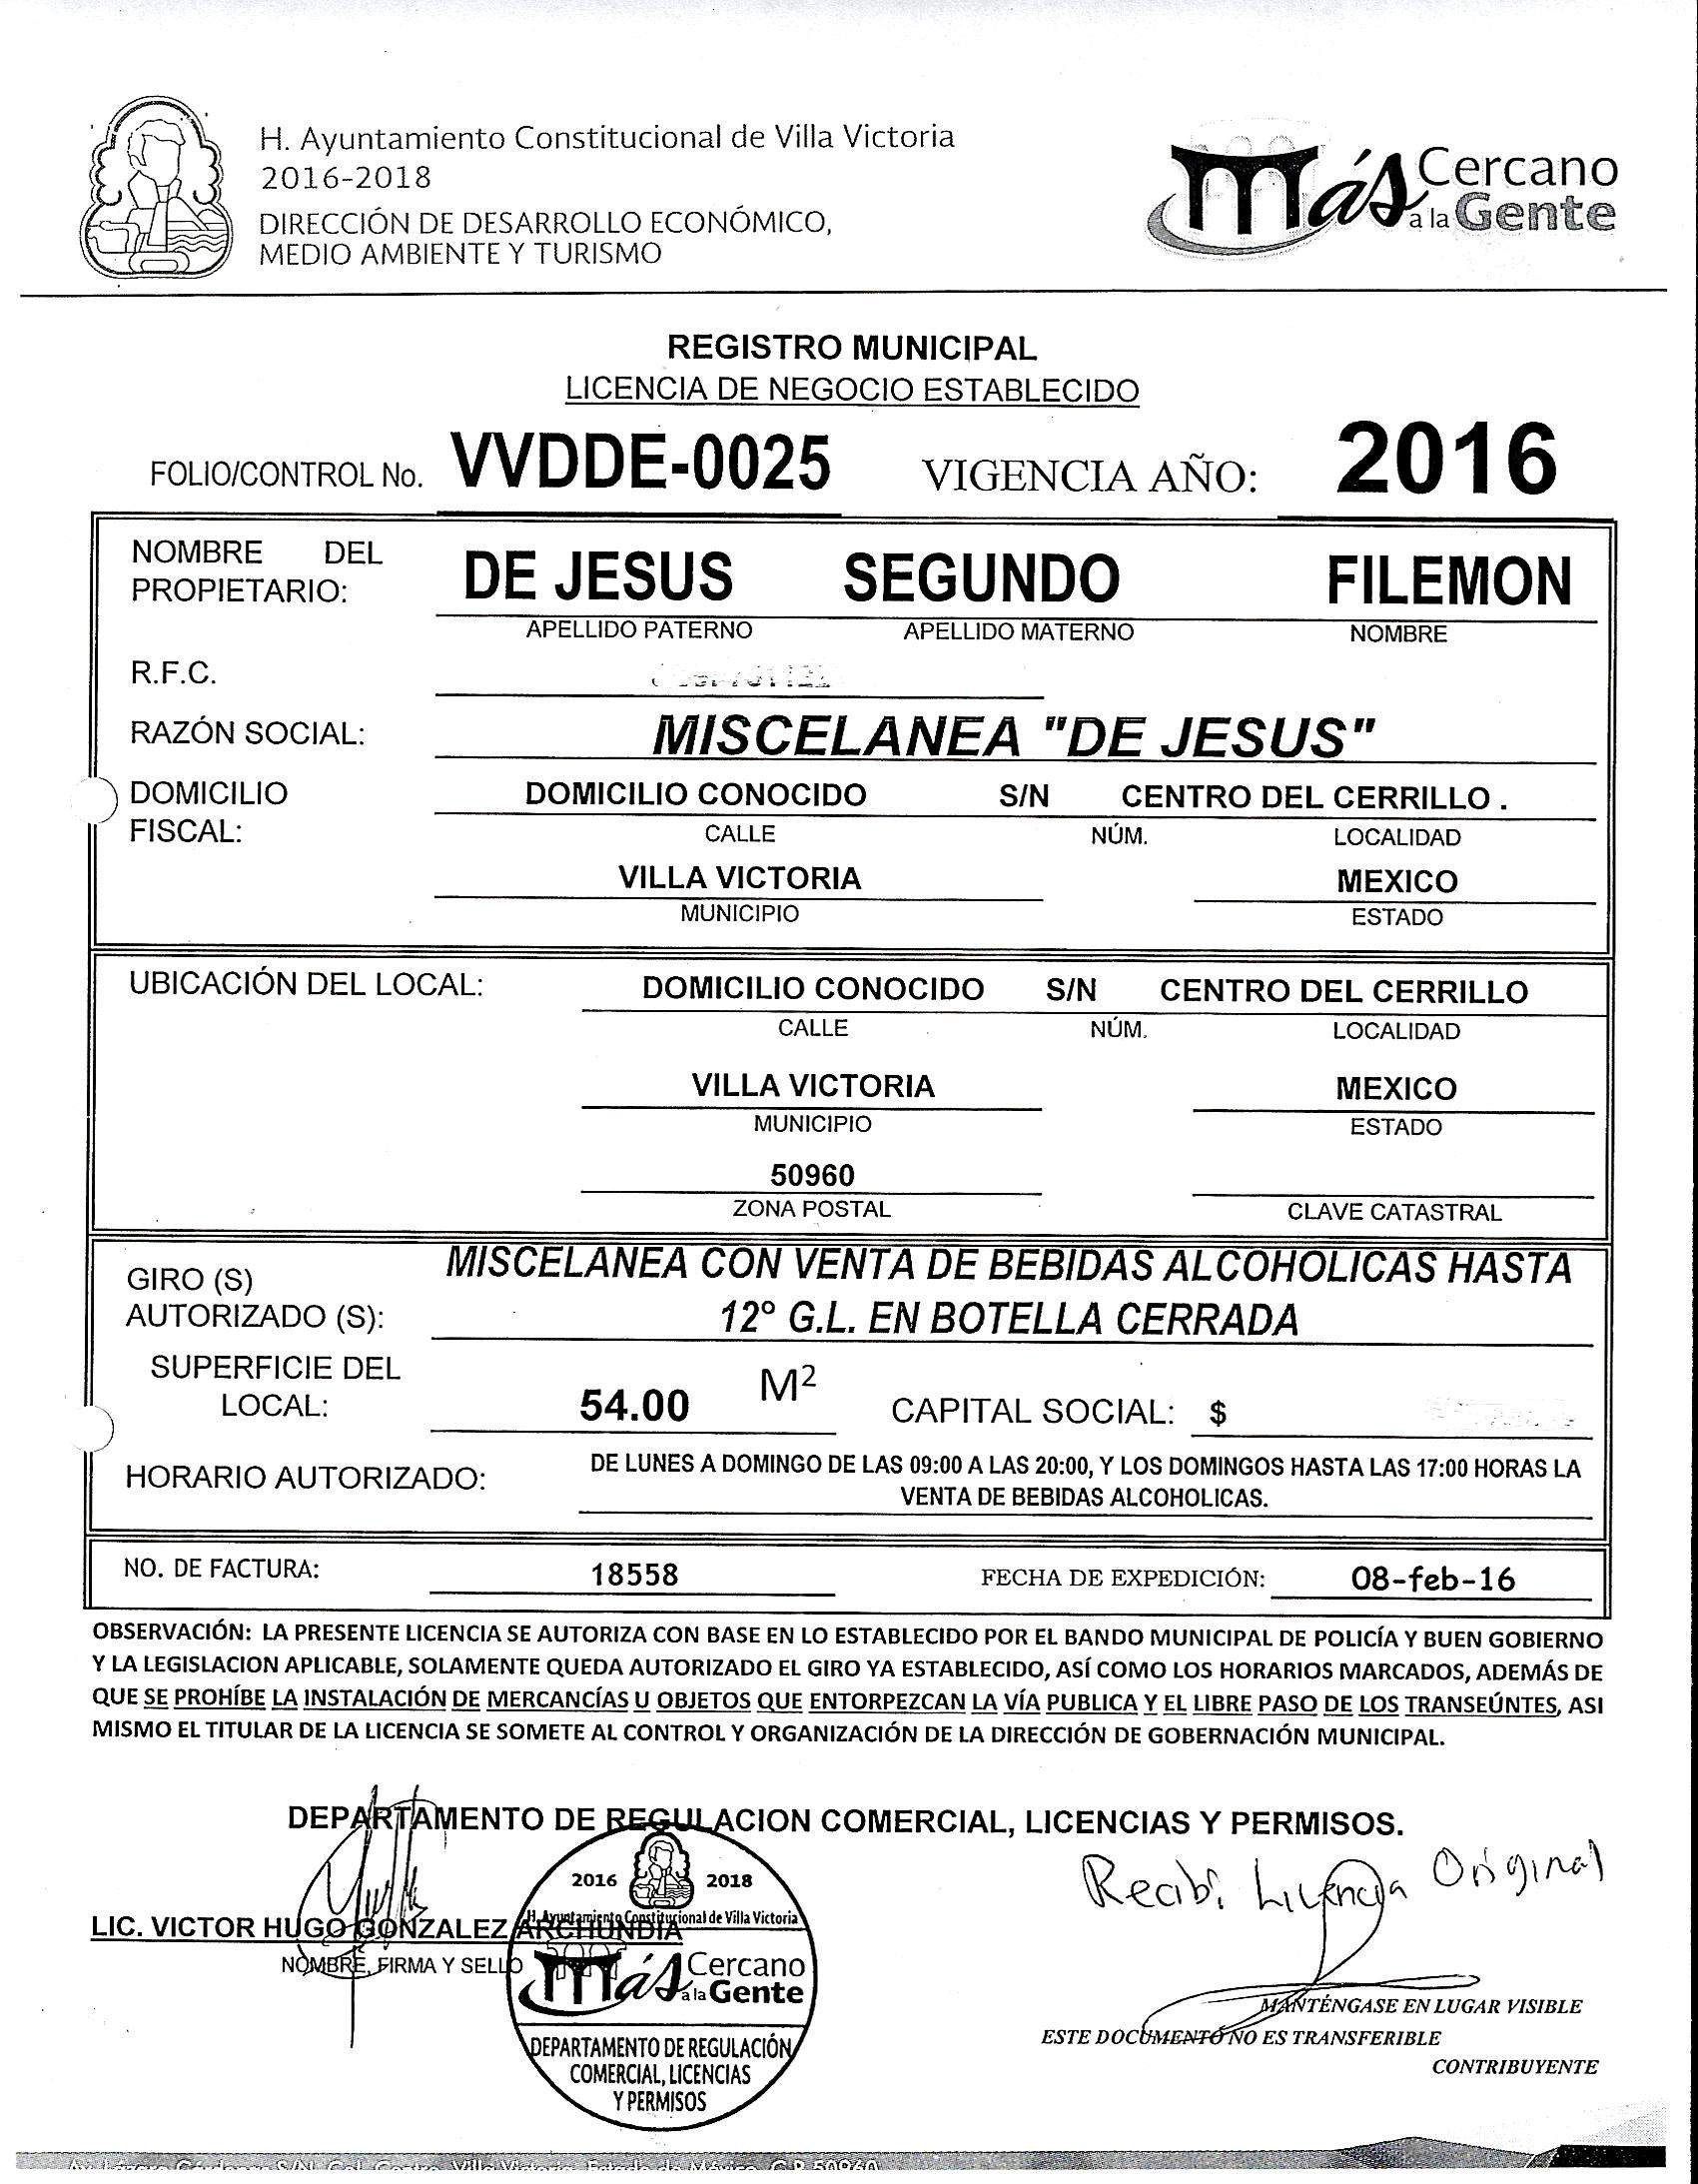 H. Ayuntamiento Constitucional de Villa Victoria
2016-2018
DIRECCIÓN DE DESARROLLO ECONÓMICO,
MEDIO AMBIENTE Y TURISMO
Más Cercano
a la Gente
REGISTRO MUNICIPAL
LICENCIA DE NEGOCIO ESTABLECIDO
FOLIO/CONTROL No. VVDDE-0025 VIGENCIA AÑO: 2016
NOMBRE DEL
PROPIETARIO: DE JESUS SEGUNDO FILEMON
APELLIDO PATERNO APELLIDO MATERNO NOMBRE
R.F.C.
RAZÓN SOCIAL: MISCELANEA "DE JESUS"
DOMICILIO DOMICILIO CONOCIDO S/N CENTRO DEL CERRILLO .
FISCAL: CALLE NÚM. LOCALIDAD
VILLA VICTORIA MEXICO
MUNICIPIO ESTADO
UBICACIÓN DEL LOCAL: DOMICILIO CONOCIDO S/N CENTRO DEL CERRILLO
CALLE NÚM. LOCALIDAD
VILLA VICTORIA MEXICO
MUNICIPIO ESTADO
50960
ZONA POSTAL CLAVE CATASTRAL
GIRO (S) MISCELANEA CON VENTA DE BEBIDAS ALCOHOLICAS HASTA
AUTORIZADO (S): 12° G.L. EN BOTELLA CERRADA
SUPERFICIE DEL
LOCAL: 54.00 M² CAPITAL SOCIAL: $
HORARIO AUTORIZADO: DE LUNES A DOMINGO DE LAS 09:00 A LAS 20:00, Y LOS DOMINGOS HASTA LAS 17:00 HORAS LA
VENTA DE BEBIDAS ALCOHOLICAS.
NO. DE FACTURA: 18558 FECHA DE EXPEDICIÓN: 08-feb-16
OBSERVACIÓN: LA PRESENTE LICENCIA SE AUTORIZA CON BASE EN LO ESTABLECIDO POR EL BANDO MUNICIPAL DE POLICÍA Y BUEN GOBIERNO
Y LA LEGISLACION APLICABLE, SOLAMENTE QUEDA AUTORIZADO EL GIRO YA ESTABLECIDO, ASÍ COMO LOS HORARIOS MARCADOS, ADEMÁS DE
QUE SE PROHÍBE LA INSTALACIÓN DE MERCANCÍAS U OBJETOS QUE ENTORPEZCAN LA VÍA PUBLICA Y EL LIBRE PASO DE LOS TRANSEÚNTES, ASI
MISMO EL TITULAR DE LA LICENCIA SE SOMETE AL CONTROL Y ORGANIZACIÓN DE LA DIRECCIÓN DE GOBERNACIÓN MUNICIPAL.
DEPARTAMENTO DE REGULACION COMERCIAL, LICENCIAS Y PERMISOS.
Recibi Licencia Original
LIC. VICTOR HUGO GONZALEZ ARCHUNDIA
NOMBRE, FIRMA Y SELLO
2016 2018
H. Ayuntamiento Constitucional de Villa Victoria
Más Cercano
a la Gente
DEPARTAMENTO DE REGULACIÓN
COMERCIAL, LICENCIAS
Y PERMISOS
MANTÉNGASE EN LUGAR VISIBLE
ESTE DOCUMENTO NO ES TRANSFERIBLE
CONTRIBUYENTE